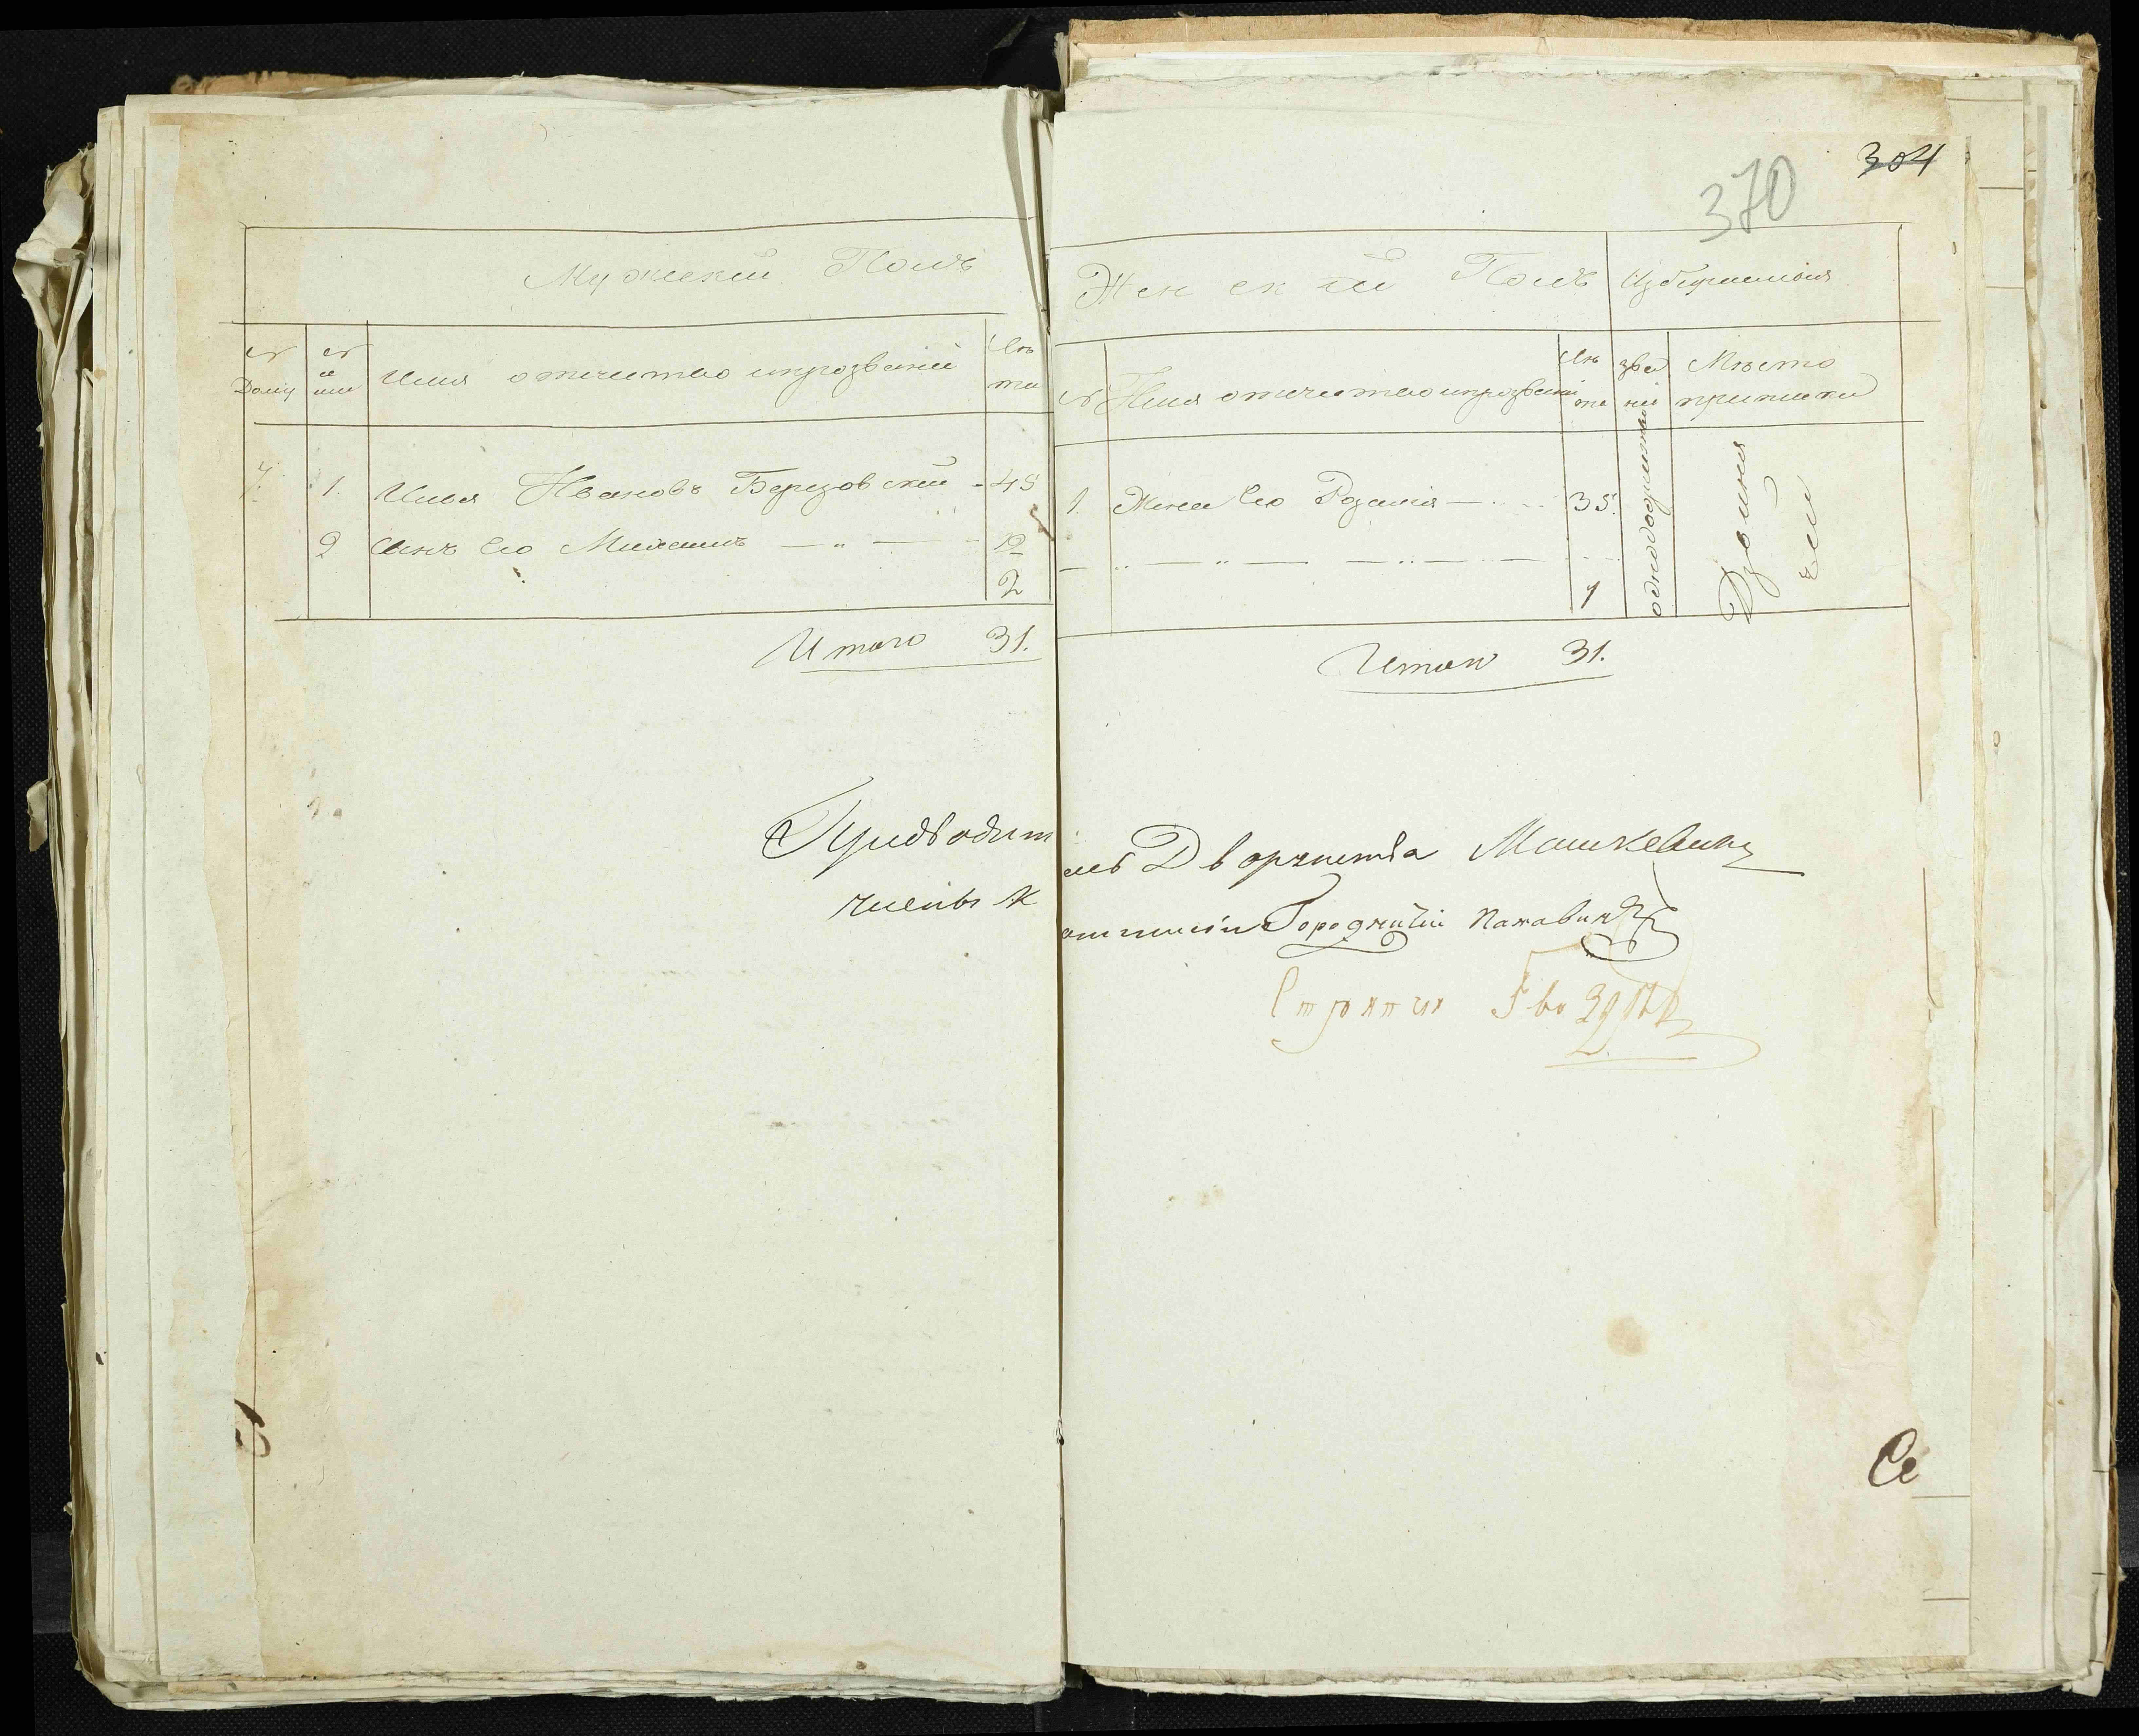 304
370
Мужеский Полъ
№ Дому
№ семи
Имя отечество ипрозвание
Лѣта
7. 1. Илья Ивановъ Березовский - 45
2 Сынъ Его Михаилъ — „ — 12
2
Итого 31.
Женский Полъ
Избираемыя
№ Имя отечество ипрозвание
Лѣта
звание
Мѣсто приписки
1. Жена Его Розалия — 35.
однодворцы
1
Итого 31.
Предводитель Дворянства Машкевичъ
членъ Комисии Городничий
Стряпчи
Се